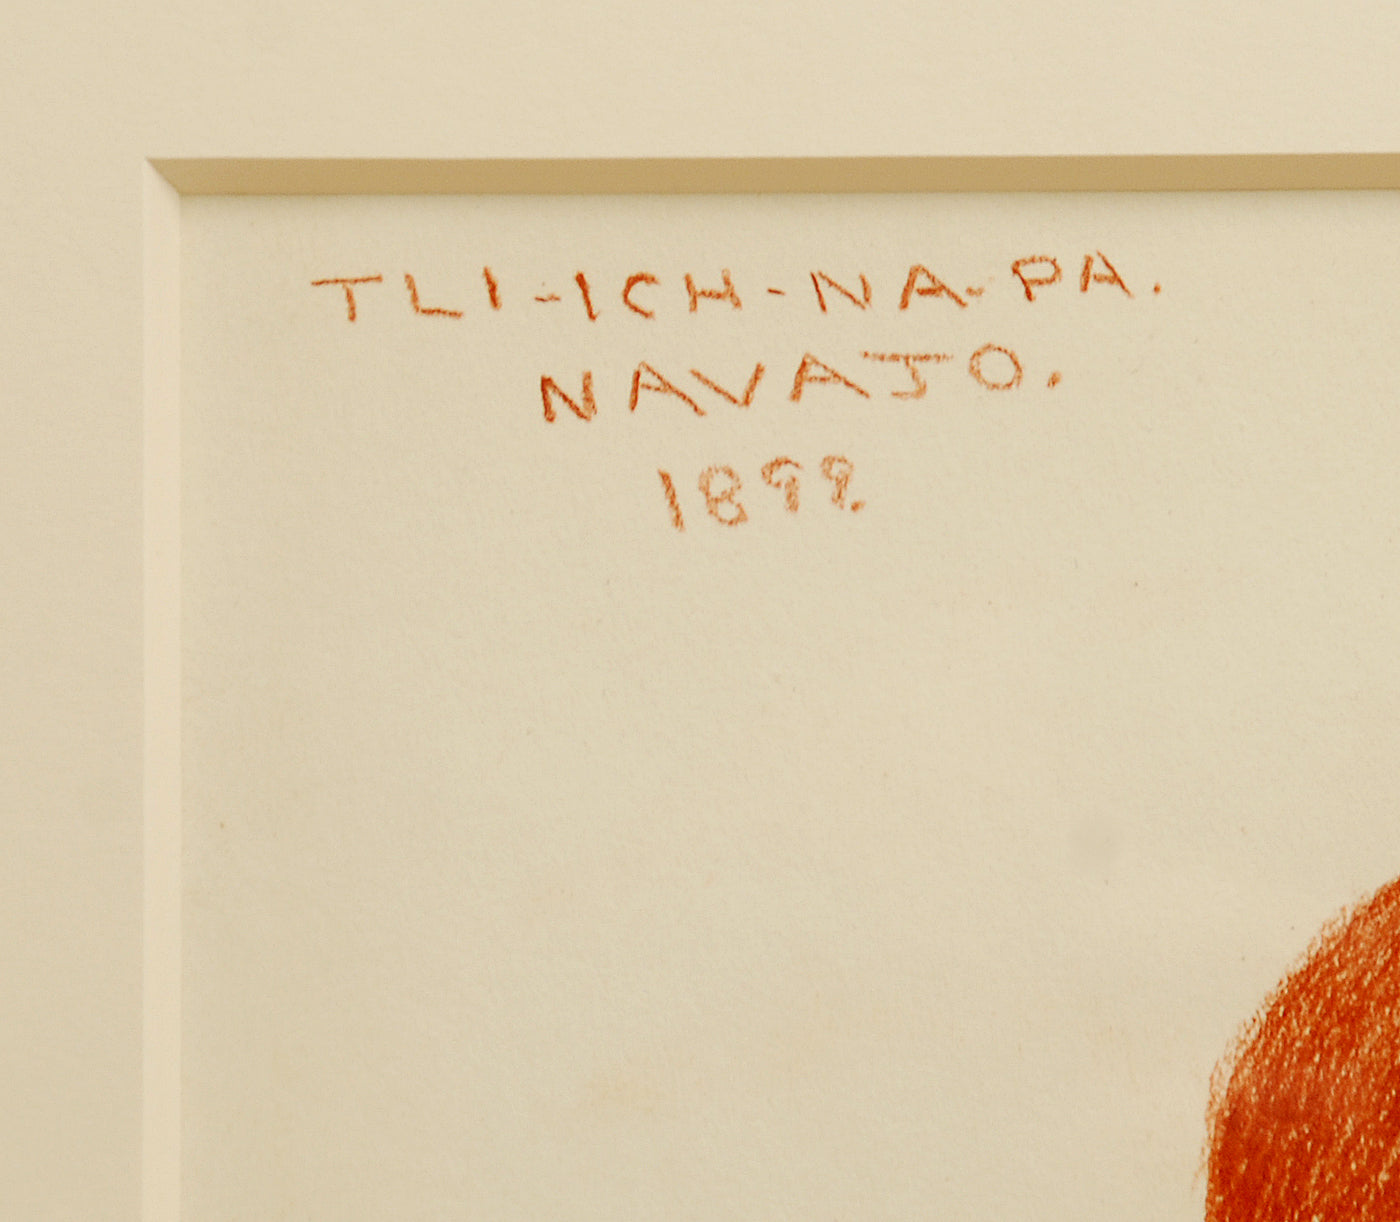 TLI-ICH-NA-PA.
NAVAJO.
1899.